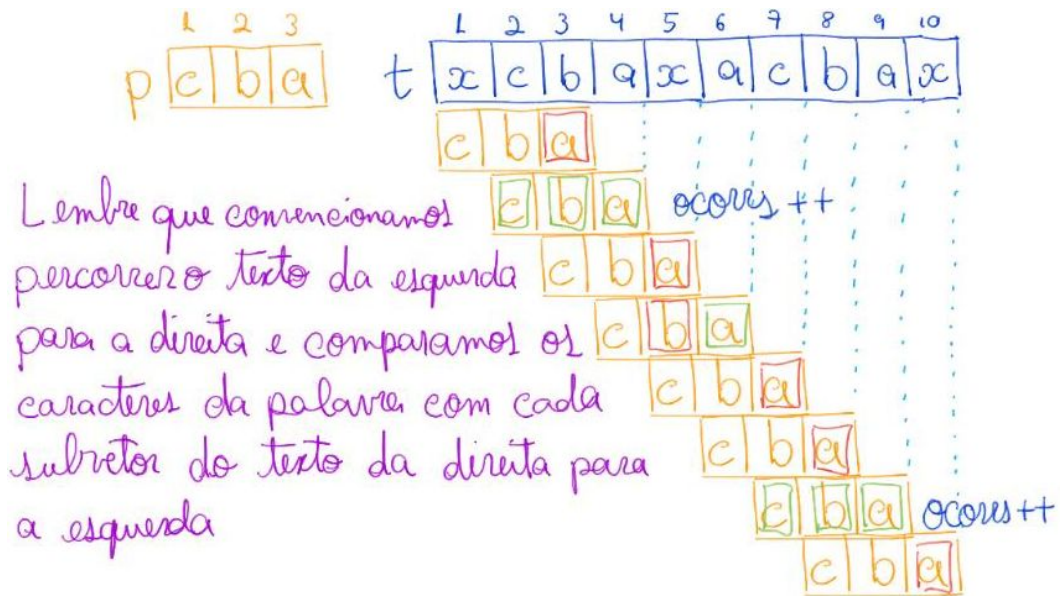 1 2 3
p c b a
1 2 3 4 5 6 7 8 9 10
t x c b a x a c b a x
c b a
c b a ocorrs ++
c b a
c b a
c b a
c b a
c b a ocorrs++
c b a
Lembre que convencionamos
percorrer o texto da esquerda
para a direita e comparamos os
caracteres da palavra com cada
subvetor do texto da direita para
a esquerda